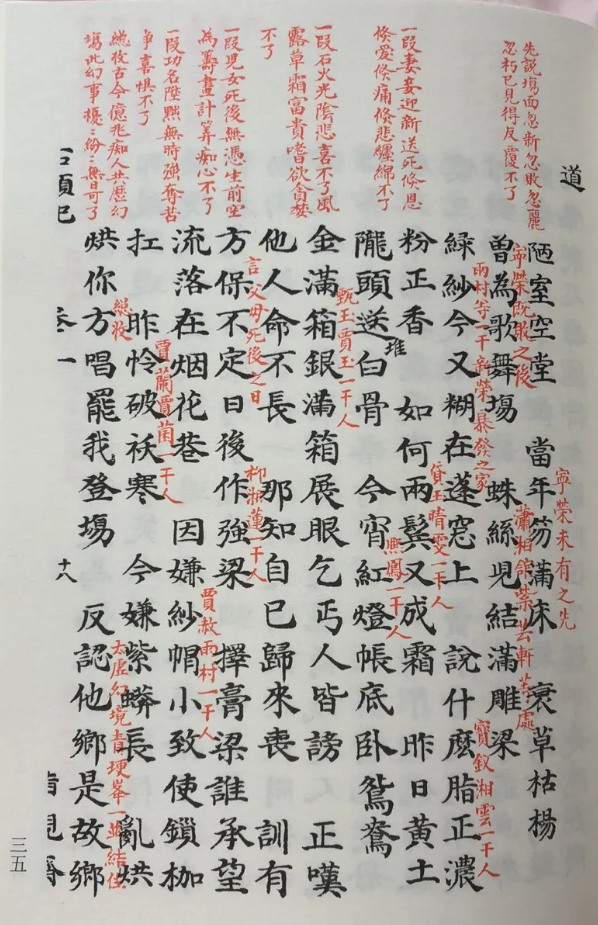 道
先說塲面忽新忽敗忽麗
忽朽已見得反覆不了
一段妻妾迎新送死倏恩
倏愛倏痛倏悲纏綿不了
一段石火光陰悲喜不了風
露草霜富貴嗜欲貪婪
不了
一段兒女死後無憑生前空
為籌畫計筭痴心不了
一段功名陞黜無時強奪苦
争喜惧不了
總收古今億兆痴人共歴幻
塲此幻事擾〻紛〻無日可了
陋室空堂 當年笏滿床 衰草枯楊
寧榮未有之先
寧榮既敗之後
曾為歌舞塲 蛛絲兒結滿雕梁
瀟湘館紫芸軒等處
雨村等一干新榮暴發之家
綠紗今又糊在蓬窓上 說什麽脂正濃
寶釵湘雲一干人
粉正香 如何兩鬢又成霜 昨日黃土
黛玉晴雯一干人
隴頭送白骨 今宵紅燈帳底卧鴛鴦
堆
熙鳳一干人
金滿箱銀滿箱展眼乞丐人皆謗 正嘆
甄玉賈玉一干人
他人命不長 那知自已歸來喪 訓有
方保不定日後作強梁 擇膏梁誰承望
言父母死後之日
柳湘蓮一干人
流落在烟花巷 因嫌紗帽小致使鎖枷
賈赦雨村一干人
扛 昨怜破袄寒 今嫌紫蟒長 亂烘
賈蘭賈菌一干人
烘你方唱罷我登塲 反認他鄉是故鄉
總收
太虛幻境青埂峯一並結住
卷一
十八
三五